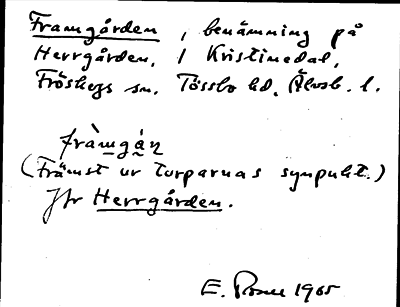 Framgården, benämning på
Herrgården, i Kristinedal,
Fröskogs sn. Tössbo hd. Älvsb. l.
fràmgá̀n
(Främst ur torparnas synpukt.)
Jfr Herrgården.
E. 1965